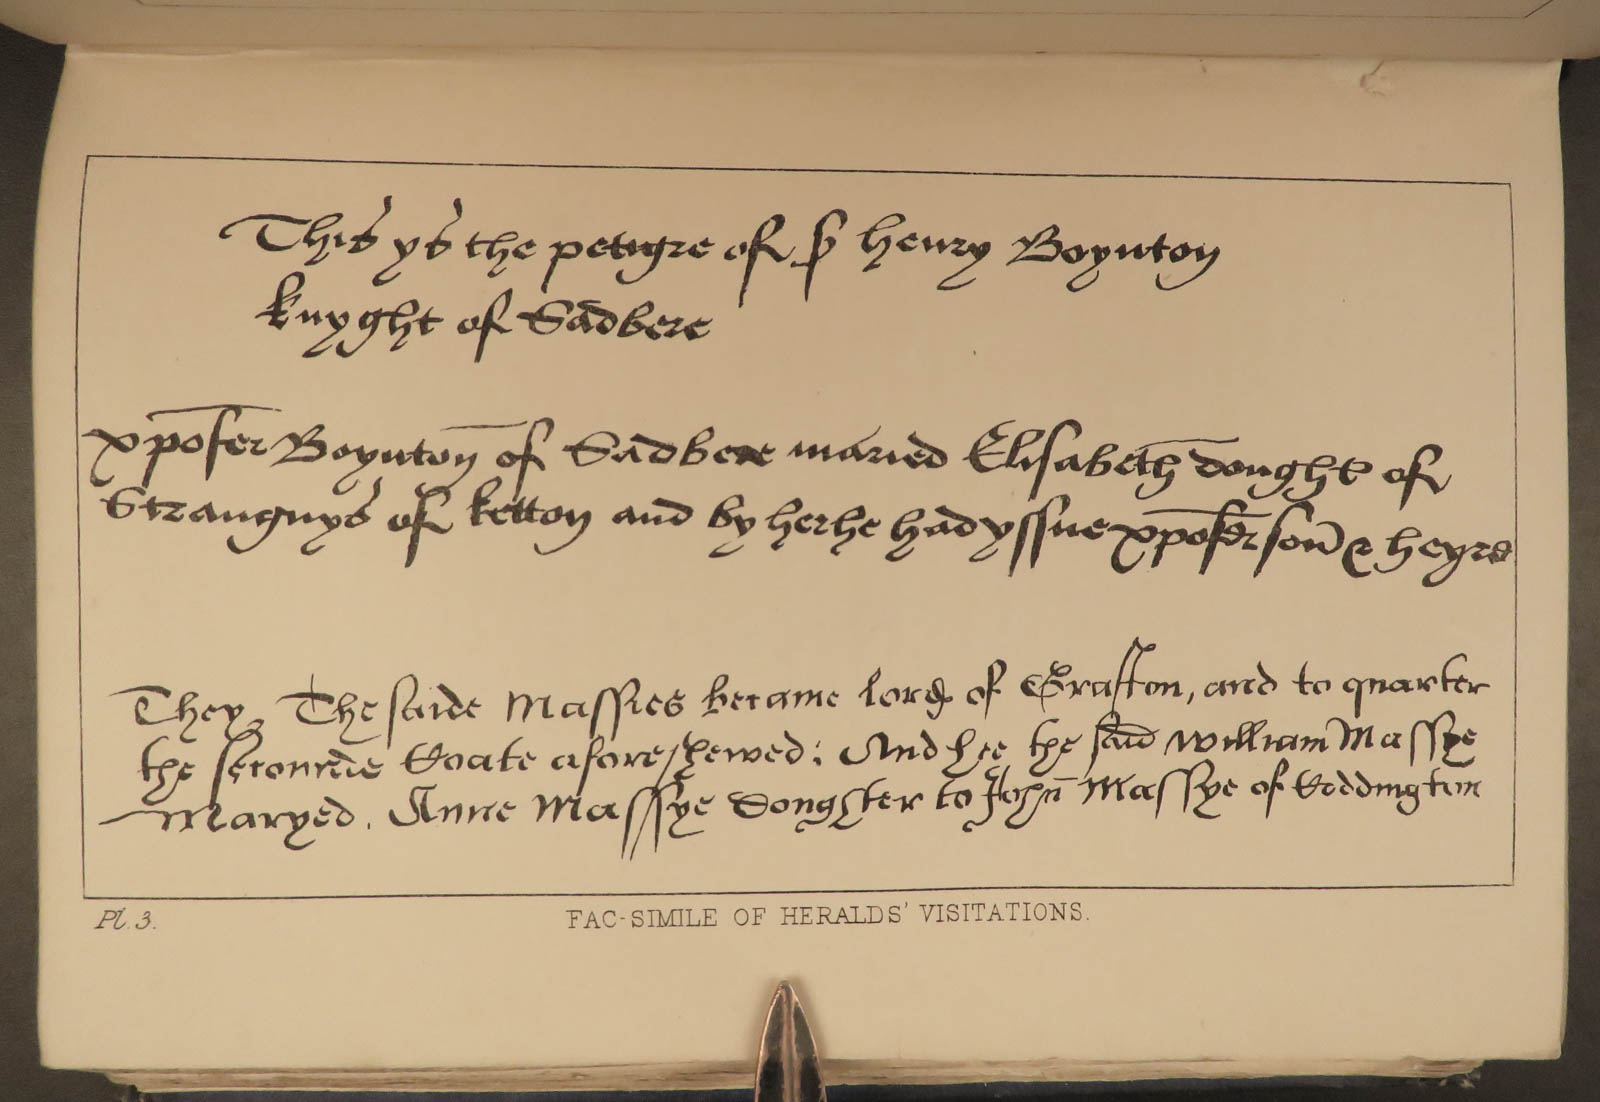 This ys the petigre of Sr henry Boynton
knyght of Sadbere
xpofer Boynton of Sadbere maried Elisabeth dought of
Stranguys of ketton and by her he had yssue xpofer son & heyre
They, The saide Massies became lords of Grafton, and to quarter
the seconde Coate aforeshewed: And hee the said William Massye
Maryed. Anne Massye Doughter to John Massye of Coddington
Pl. 3.
FAC-SIMILE OF HERALDS' VISITATIONS.